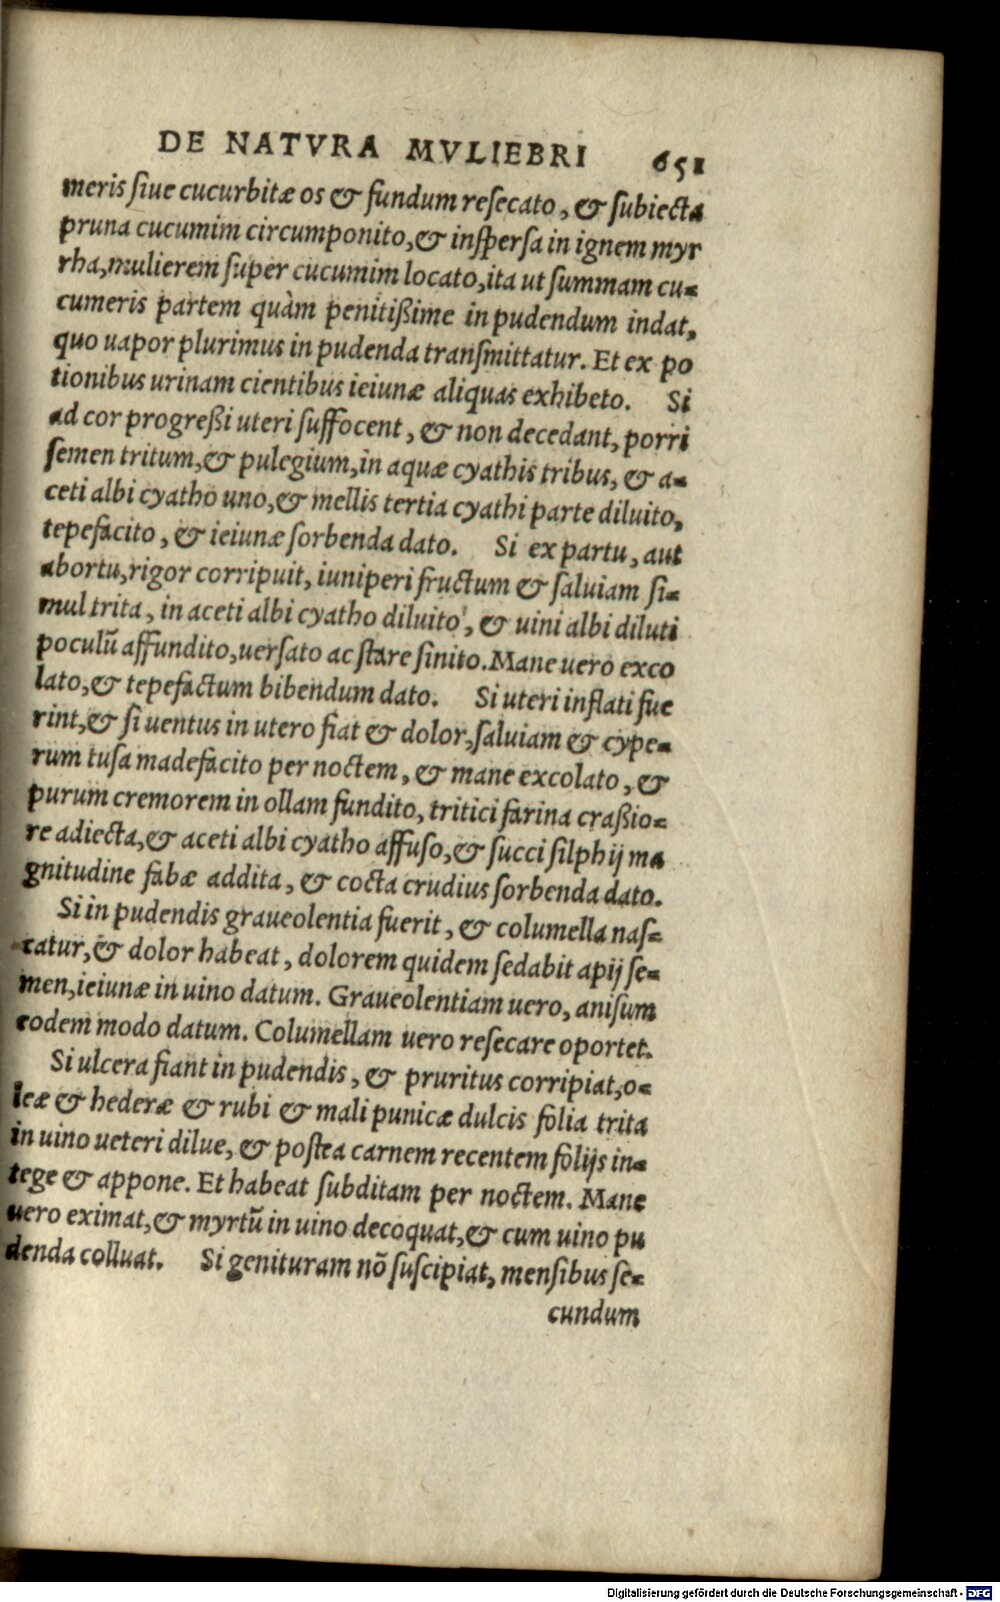 DE NATVRA MVLIEBRI 651
meris ſiue cucurbitæ os & fundum reſecato, & ſubiecta
pruna cucumim circumponito, & inſperſa in ignem myr
rha, mulierem ſuper cucumim locato, ita ut ſummam cu-
cumeris partem quàm penitißime in pudendum indat,
quo uapor plurimus in pudenda tranſmittatur. Et ex po
tionibus urinam cientibus ieiunæ aliquas exhibeto. Si
ad cor progreßi uteri ſuffocent, & non decedant, porri
ſemen tritum, & pulegium, in aquæ cyathis tribus, & a-
ceti albi cyatho uno, & mellis tertia cyathi parte diluito,
tepefacito, & ieiunæ ſorbenda dato. Si ex partu, aut
abortu, rigor corripuit, iuniperi fructum & ſaluiam ſi-
mul trita, in aceti albi cyatho diluito, & uini albi diluti
poculũ affundito, uerſato ac ſtare ſinito. Mane uero exco
lato, & tepefactum bibendum dato. Si uteri inflati fue
rint, & ſi uentus in utero fiat & dolor, ſaluiam & cype-
rum tuſa madefacito per noctem, & mane excolato, &
purum cremorem in ollam fundito, tritici farina craßio-
re adiecta, & aceti albi cyatho affuſo, & ſucci ſilphij ma
gnitudine fabæ addita, & cocta crudius ſorbenda dato.
Si in pudendis graueolentia fuerit, & columella naſ-
catur, & dolor habeat, dolorem quidem ſedabit apij ſe-
men, ieiunæ in uino datum. Graueolentiam uero, aniſum
eodem modo datum. Columellam uero reſecare oportet.
Si ulcera fiant in pudendis, & pruritus corripiat, o-
leæ & hederæ & rubi & mali punicæ dulcis folia trita
in uino ueteri dilue, & poſtea carnem recentem folijs in-
tege & appone. Et habeat ſubditam per noctem. Mane
uero eximat, & myrtũ in uino decoquat, & cum uino pu
denda colluat. Si genituram nõ ſuſcipiat, menſibus ſe-
cundum
Digitalisierung gefördert durch die Deutsche Forschungsgemeinschaft - DFG